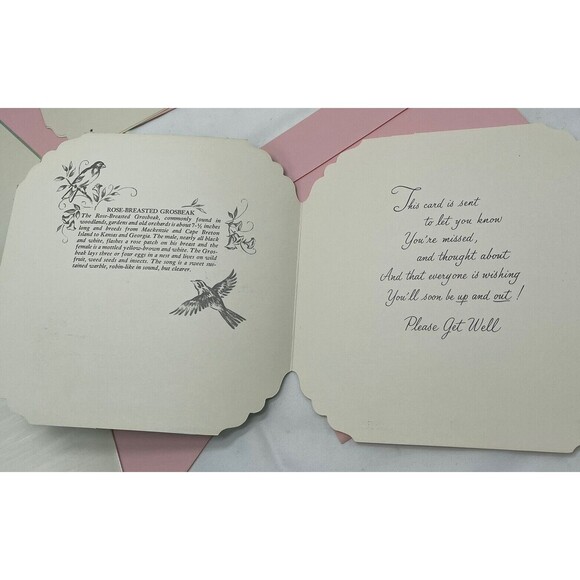 ROSE-BREASTED GROSBEAK
The Rose-Breasted Grosbeak, commonly found in
woodlands, gardens and old orchards is about 7-½ inches
long and breeds from Mackenzie and Cape Breton
Island to Kansas and Georgia. The male, nearly all black
and white, flashes a rose patch on his breast and the
female is a mottled yellow-brown and white. The Gros-
beak lays three or four eggs in a nest and lives on wild
fruit, weed seeds and insects. The song is a sweet sus-
tained warble, robin-like in sound, but clearer.
This card is sent
to let you know
You're missed,
and thought about
And that everyone is wishing
You'll soon be up and out!
Please Get Well